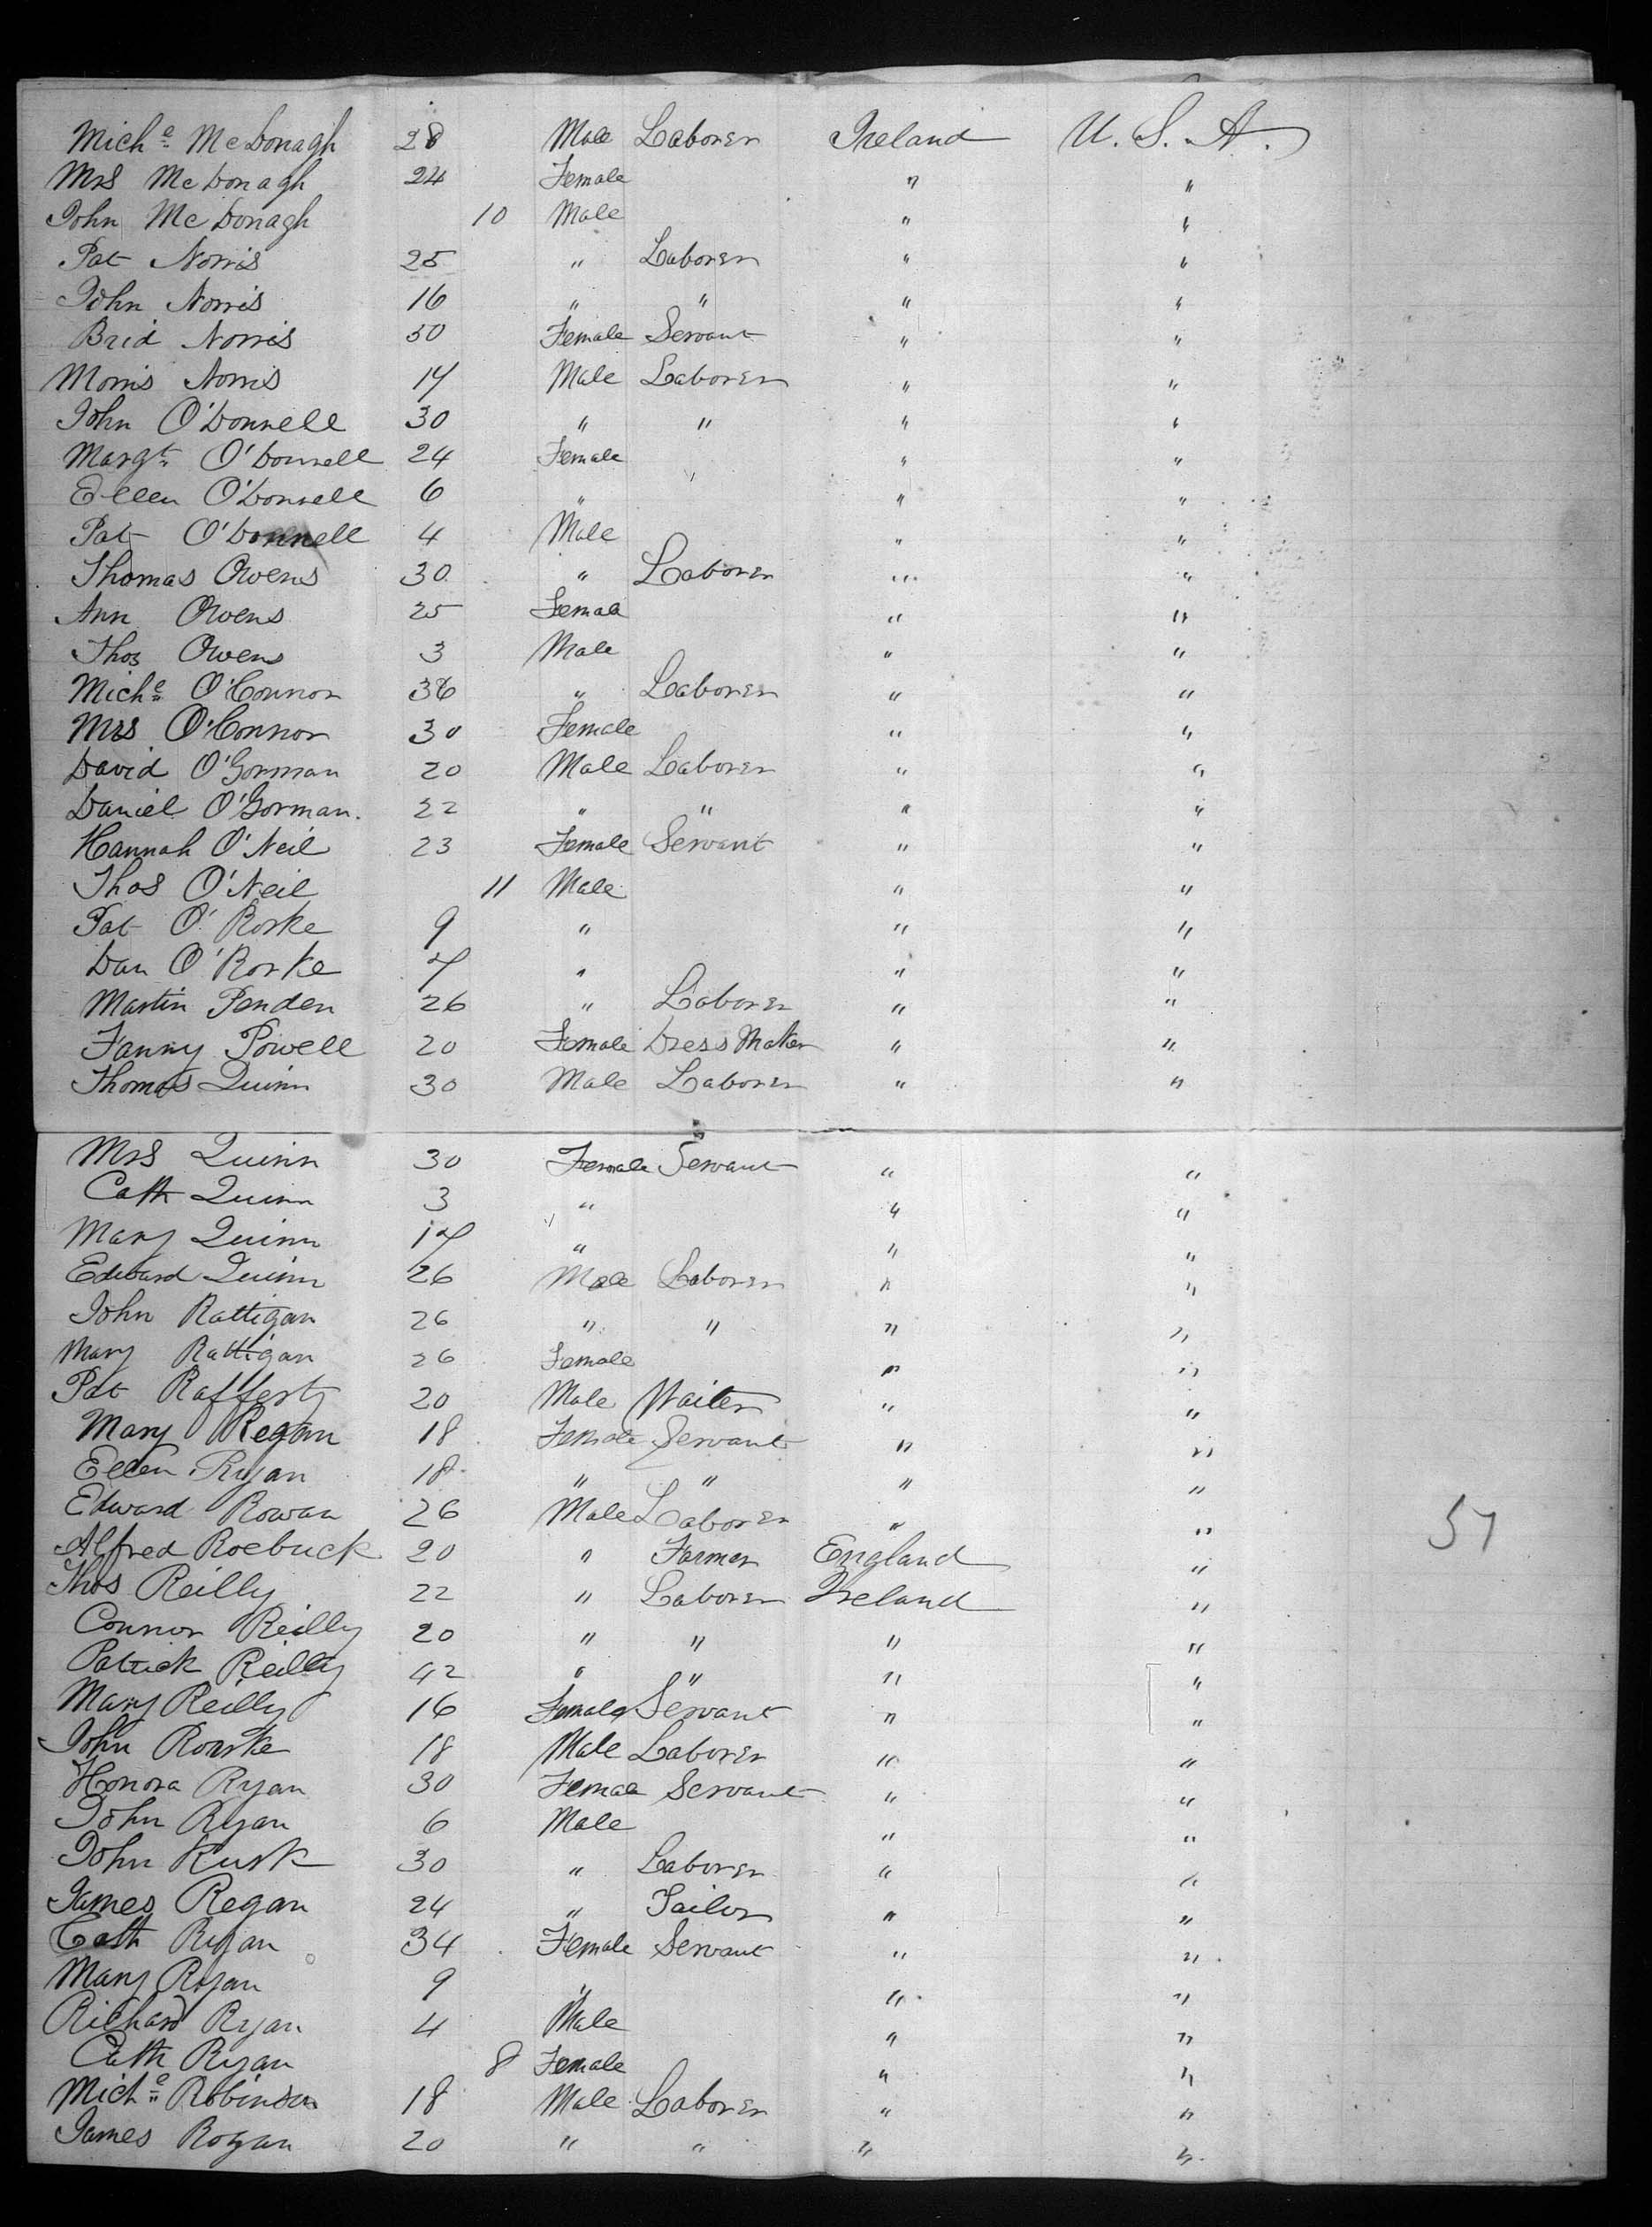 Mich^e McDonagh 28 Male Laborer Ireland U. S. A.
Mrs McDonagh 24 Female " "
John McDonagh 10 Male " "
Pat Norris 25 " Laborer " "
John Norris 16 " " " "
Brid Norris 50 Female Servant " "
Morris Norris 17 Male Laborer " "
John O'Donnell 30 " " " "
Margt O'Donnell 24 Female " "
Ellen O'Donnell 6 " " "
Pat O'Donnell 4 Male " "
Thomas Owens 30 " Laborer " "
Ann Owens 25 Female " "
Thos Owens 3 Male " "
Mich^e O'Connor 36 " Laborer " "
Mrs O'Connor 30 Female " "
David O'Gorman 20 Male Laborer " "
Daniel O'Gorman. 22 " " " "
Hannah O'Neil 23 Female Servant " "
Thos O'Neil 11 Male " "
Pat O'Rorke 9 " " "
Dan O'Rorke 7 " " "
Martin Penden 26 " Laborer " "
Fanny Powell 20 Female Dress Maker " "
Thomas Quinn 30 Male Laborer " "
Mrs Quinn 30 Female Servant " "
Cath Quinn 3 " " "
Mary Quinn 17 " " "
Edward Quinn 26 Male Laborer " "
John Rattigan 26 " " " "
Mary Rattigan 26 Female " "
Pat Rafferty 20 Male Waiter " "
Mary Regan 18 Female Servant " "
Ellen Ryan 18 " " " "
Edward Rowan 26 Male Laborer " "
57
Alfred Roebuck 20 " Farmer England "
Thos Reilly 22 " Laborer Ireland "
Connor Reilly 20 " " " "
Patrick Reilly 42 " " " "
Mary Reilly 16 Female Servant " "
John Rourke 18 Male Laborer " "
Honora Ryan 30 Female Servant " "
John Ryan 6 Male " "
John Rusk 30 " Laborer " "
James Regan 24 " Tailor " "
Cath Ryan 34 Female Servant " "
Mary Ryan 9 " " "
Richard Ryan 4 Male " "
Cath Ryan 8 Female " "
Mich^e Robinson 18 Male Laborer " "
James Rogan 20 " " " "